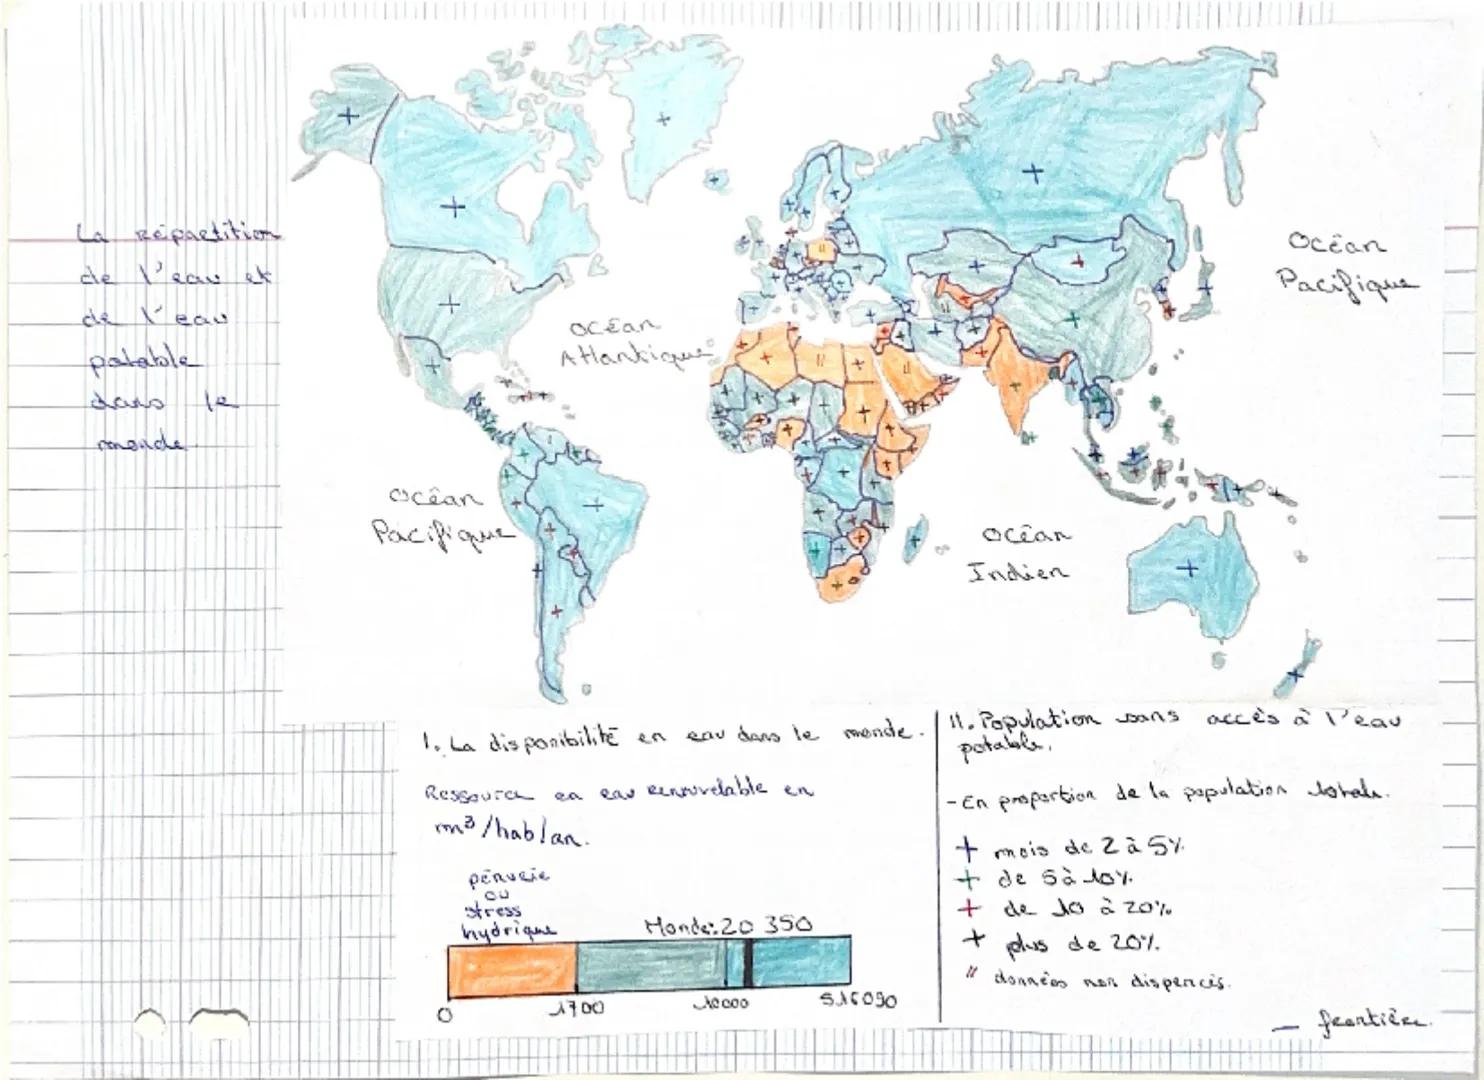 La répartition
de l'eau et
de l'eau
potable
dans le
monde.
Océan
Pacifique
Océan
Atlantique
Océan
Pacifique
Océan
Indien
I. La disponibilité en eau dans le monde.
Ressource en eau renouvelable en
m³/hab/an.
pénurie
ou
stress
hydrique
Monde: 20 350
0
1700
10000
516090
II. Population sans accès à l'eau
potable.
- En proportion de la population totale.
+ mois de 2 à 5%
+ de 5 à 10%
+ de 10 à 20%
+ plus de 20%.
" données non
— frontière.